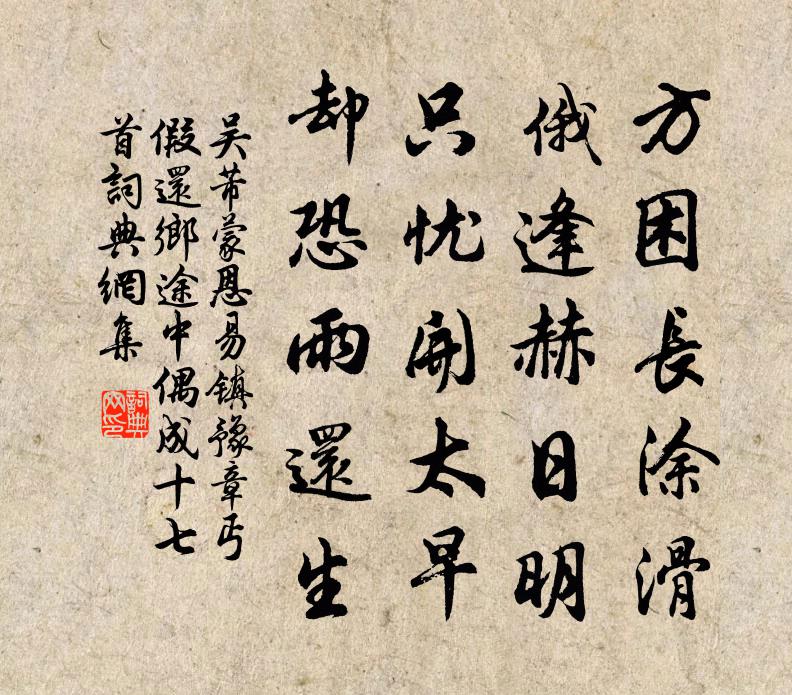 方困長涂滑
俄逢赫日明
只忧開太早
却恐雨還生
吴芾蒙恩易鎮豫章丐
假還鄉途中偶成十七
首詞典網集
詞典网印